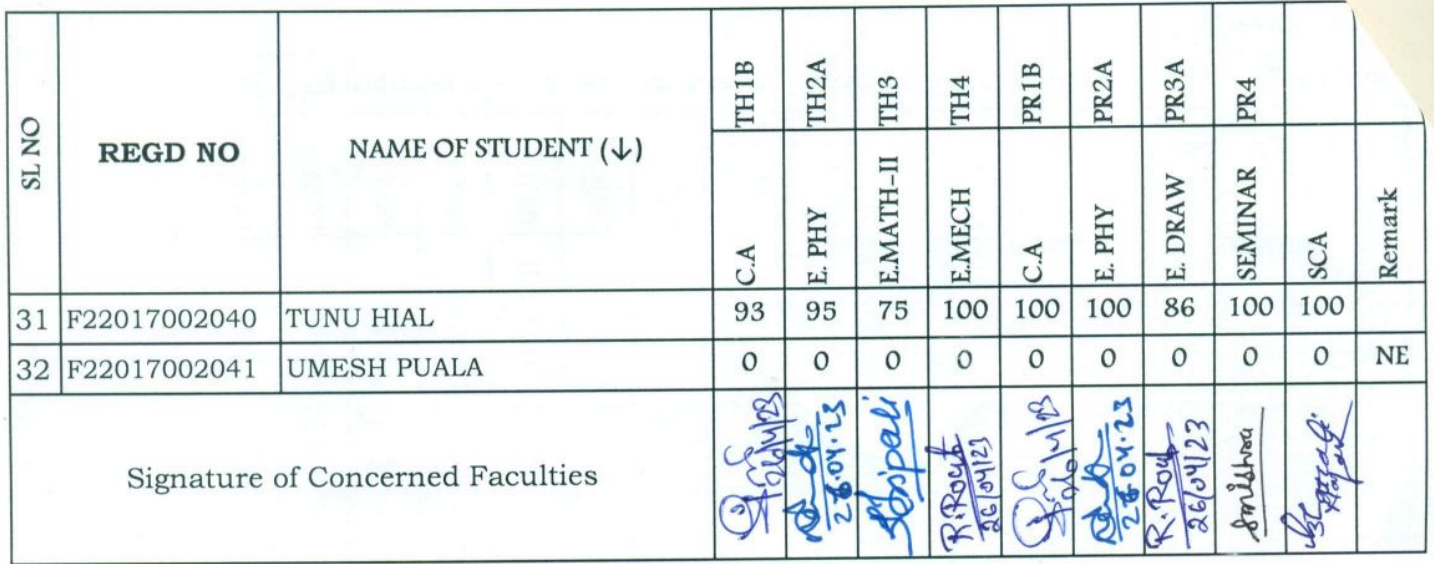 SL NO REGD NO NAME OF STUDENT (↓) TH1B TH2A TH3 TH4 PR1B PR2A PR3A PR4
C.A E. PHY E.MATH-II E.MECH C.A E. PHY E. DRAW SEMINAR SCA Remark
31 F22017002040 TUNU HIAL 93 95 75 100 100 100 86 100 100
32 F22017002041 UMESH PUALA 0 0 0 0 0 0 0 0 0 NE
Signature of Concerned Faculties
26/4/23 26.04.23 R.Rout 26/04/23 26/4/23 26.04.23 R.Rout 26/04/23